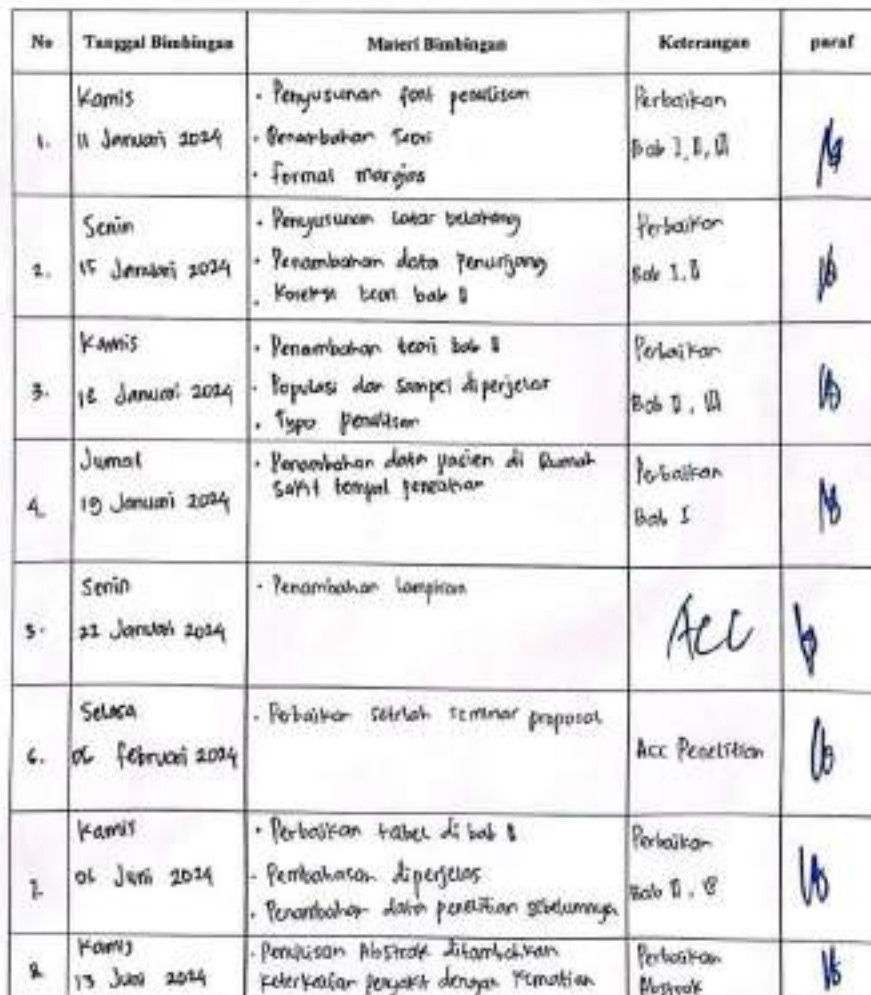 No Tanggal Bimbingan Materi Bimbingan Keterangan paraf
1. Kamis
11 Januari 2024
· Penyusunan font penulisan
· Penambahan teori
· Format margins
Perbaikan
Bab I, II, III
2. Senin
15 Januari 2024
· Penyusunan latar belakang
· Penambahan data Penunjang
· Koreksi teori bab II
Perbaikan
Bab I, II
3. Kamis
18 Januari 2024
· Penambahan teori bab II
· Populasi dan Sampel diperjelas
· Typo penulisan
Perbaikan
Bab II, III
4. Jumat
19 Januari 2024
· Penambahan data pasien di Rumah
sakit tempat penelitian
Perbaikan
Bab I
5. Senin
22 Januari 2024
· Penambahan lampiran
ACC
6. Selasa
06 Februari 2024
· Perbaikan setelah seminar proposal
Acc Penelitian
7. Kamis
06 Juni 2024
· Perbaikan tabel di bab
· Pembahasan diperjelas
· Penambahan data penelitian sebelumnya
Perbaikan
Bab
8. Kamis
13 Juni 2024
· Penulisan Abstrak ditambahkan
keterkaitan penyakit dengan kematian
Perbaikan
Abstrak